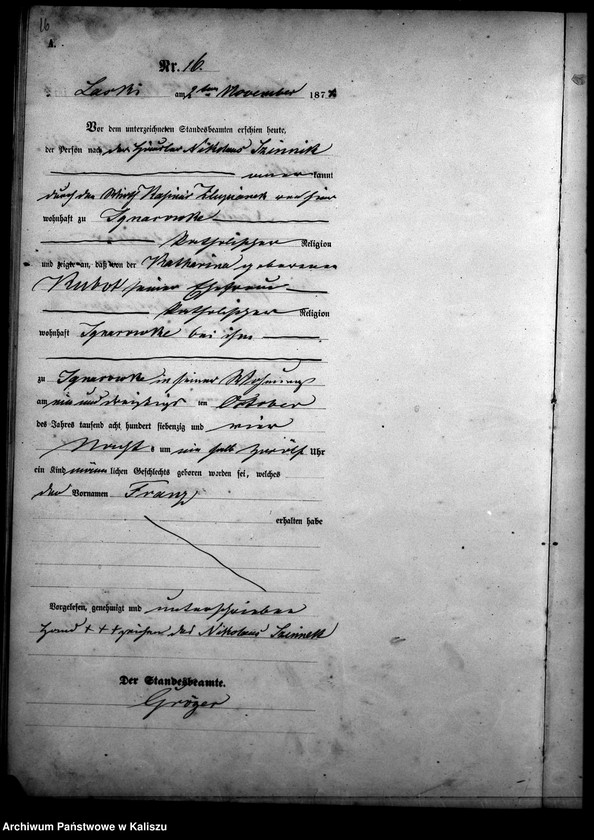 16
A.
Nr. 16.
Laski am 2ten November 1874
Vor dem unterzeichneten Standesbeamten erschien heute,
der Person nach der Häusler Nikolaus
kannt
durch den Wirth Kasimir
wohnhaft zu
katholischer Religion
und zeigte an, daß von der Katharina geborenen
Kubot seiner Ehefrau
katholischer Religion
wohnhaft bei ihm
zu in seiner Wohnung
am ein und dreißigs ten October
des Jahres tausend acht hundert siebenzig und vier
Nachts um ein halb zwölf Uhr
ein Kind männlichen Geschlechts geboren worden sei, welches
den Vornamen Franz
erhalten habe
Vorgelesen, genehmigt und unterschrieben
Hand + + + zeichen des Nikolaus
Der Standesbeamte.
Gröger
Archiwum Państwowe w Kaliszu